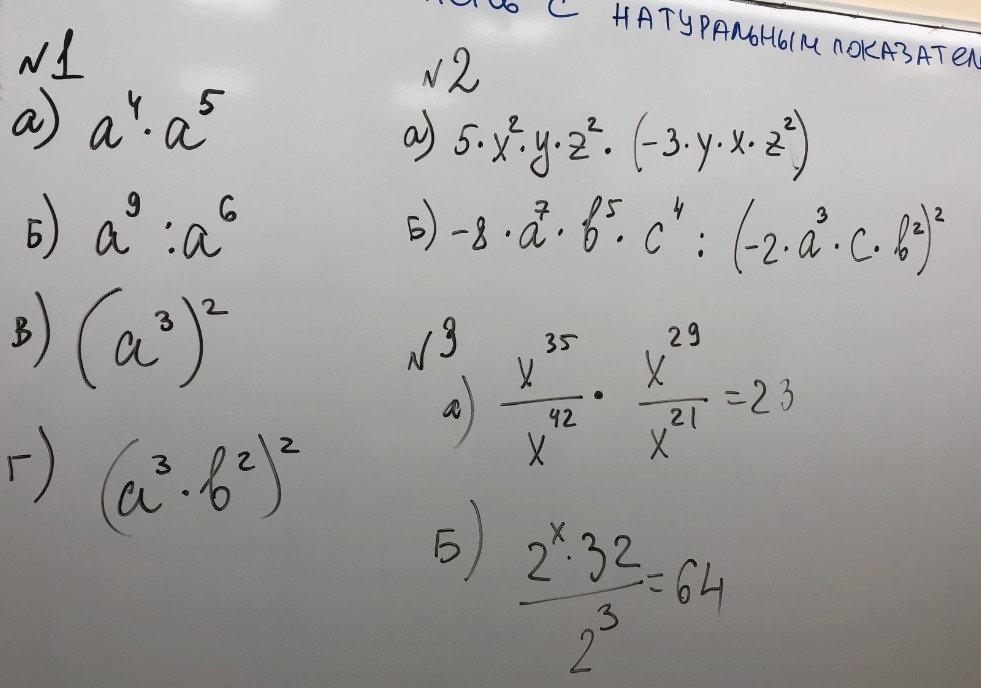 с НАТУРАЛЬНЫМ ПОКАЗАТЕЛ
№1
а) a⁴·a⁵
Б) a⁹:a⁶
в) (a³)²
г) (a³·b²)²
№2
а) 5·x²·y·z²·(-3·y·x·z²)
Б) -8·a⁷·b⁵·c⁴:(-2·a³·c·b²)²
№3
а) x³⁵/x⁴² · x²⁹/x²¹ =23
Б) 2ˣ·32/2³ =64